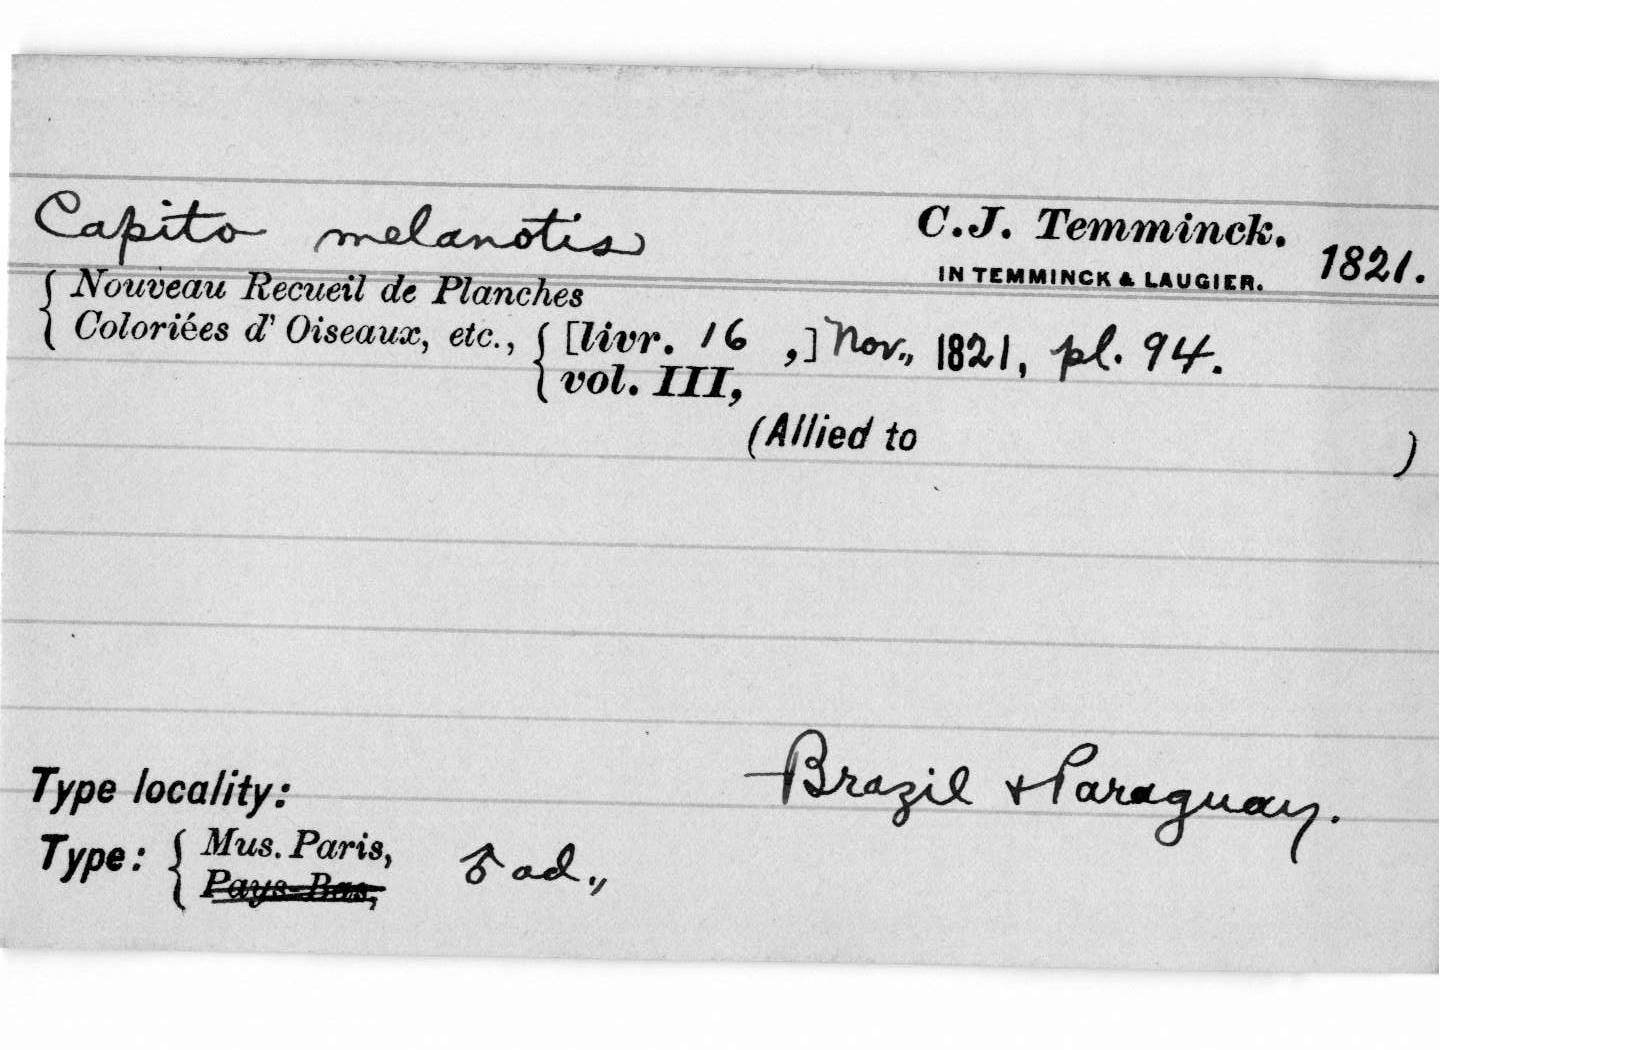 Capito melanotis C.J. Temminck. 1821.
IN TEMMINCK & LAUGIER.
{ Nouveau Recueil de Planches
Coloriées d' Oiseaux, etc., { [livr. 16 ,] Nov., 1821, pl. 94.
vol. III,
(Allied to )
Type locality: Brazil & Paraguay.
Type: { Mus. Paris, ♂ ad.,
Pays-Bas,